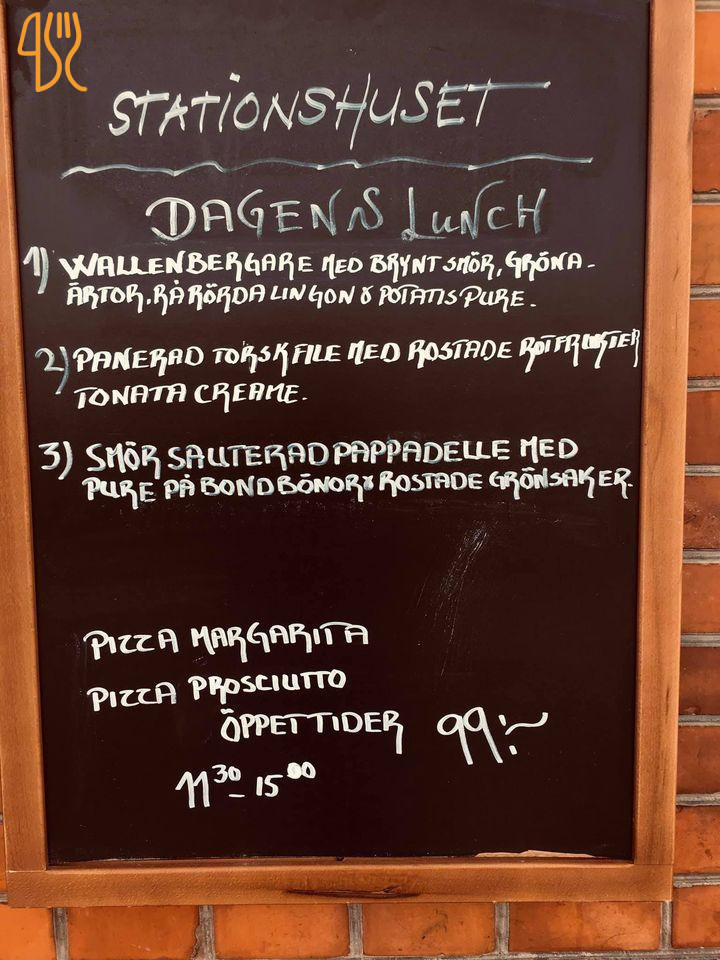 STATIONSHUSET
DAGENS LUNCH
1) WALLENBERGARE MED BRYNT SMÖR, GRÖNA-
ÄRTOR, RÅRÖRDA LINGON & POTATISPURE.
2) PANERAD TORSKFILE MED ROSTADE ROTFRUKTER
TONATA CREAME.
3) SMÖR SAUTERAD PAPPADELLE MED
PURE PÅ BONDBÖNOR & ROSTADE GRÖNSAKER.
PIZZA MARGARITA
PIZZA PROSCIUTTO
ÖPPETTIDER 99:-
11 30 - 15 00